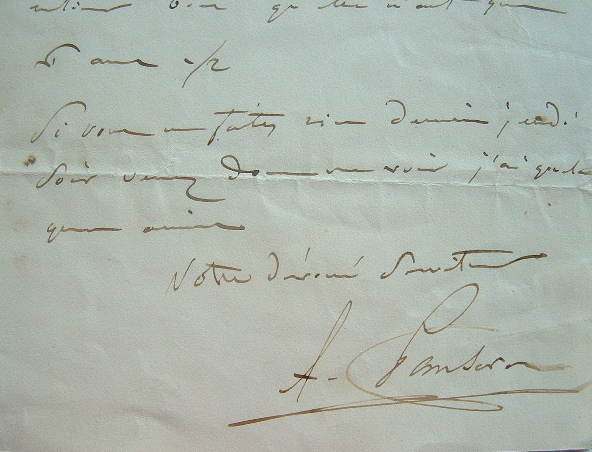 5 ans 1/2
Si vous ne faites rien demain jeudi
Soir venez donc me voir j'ai quel
ques amis
Votre dévoué Serviteur
A. Panseron